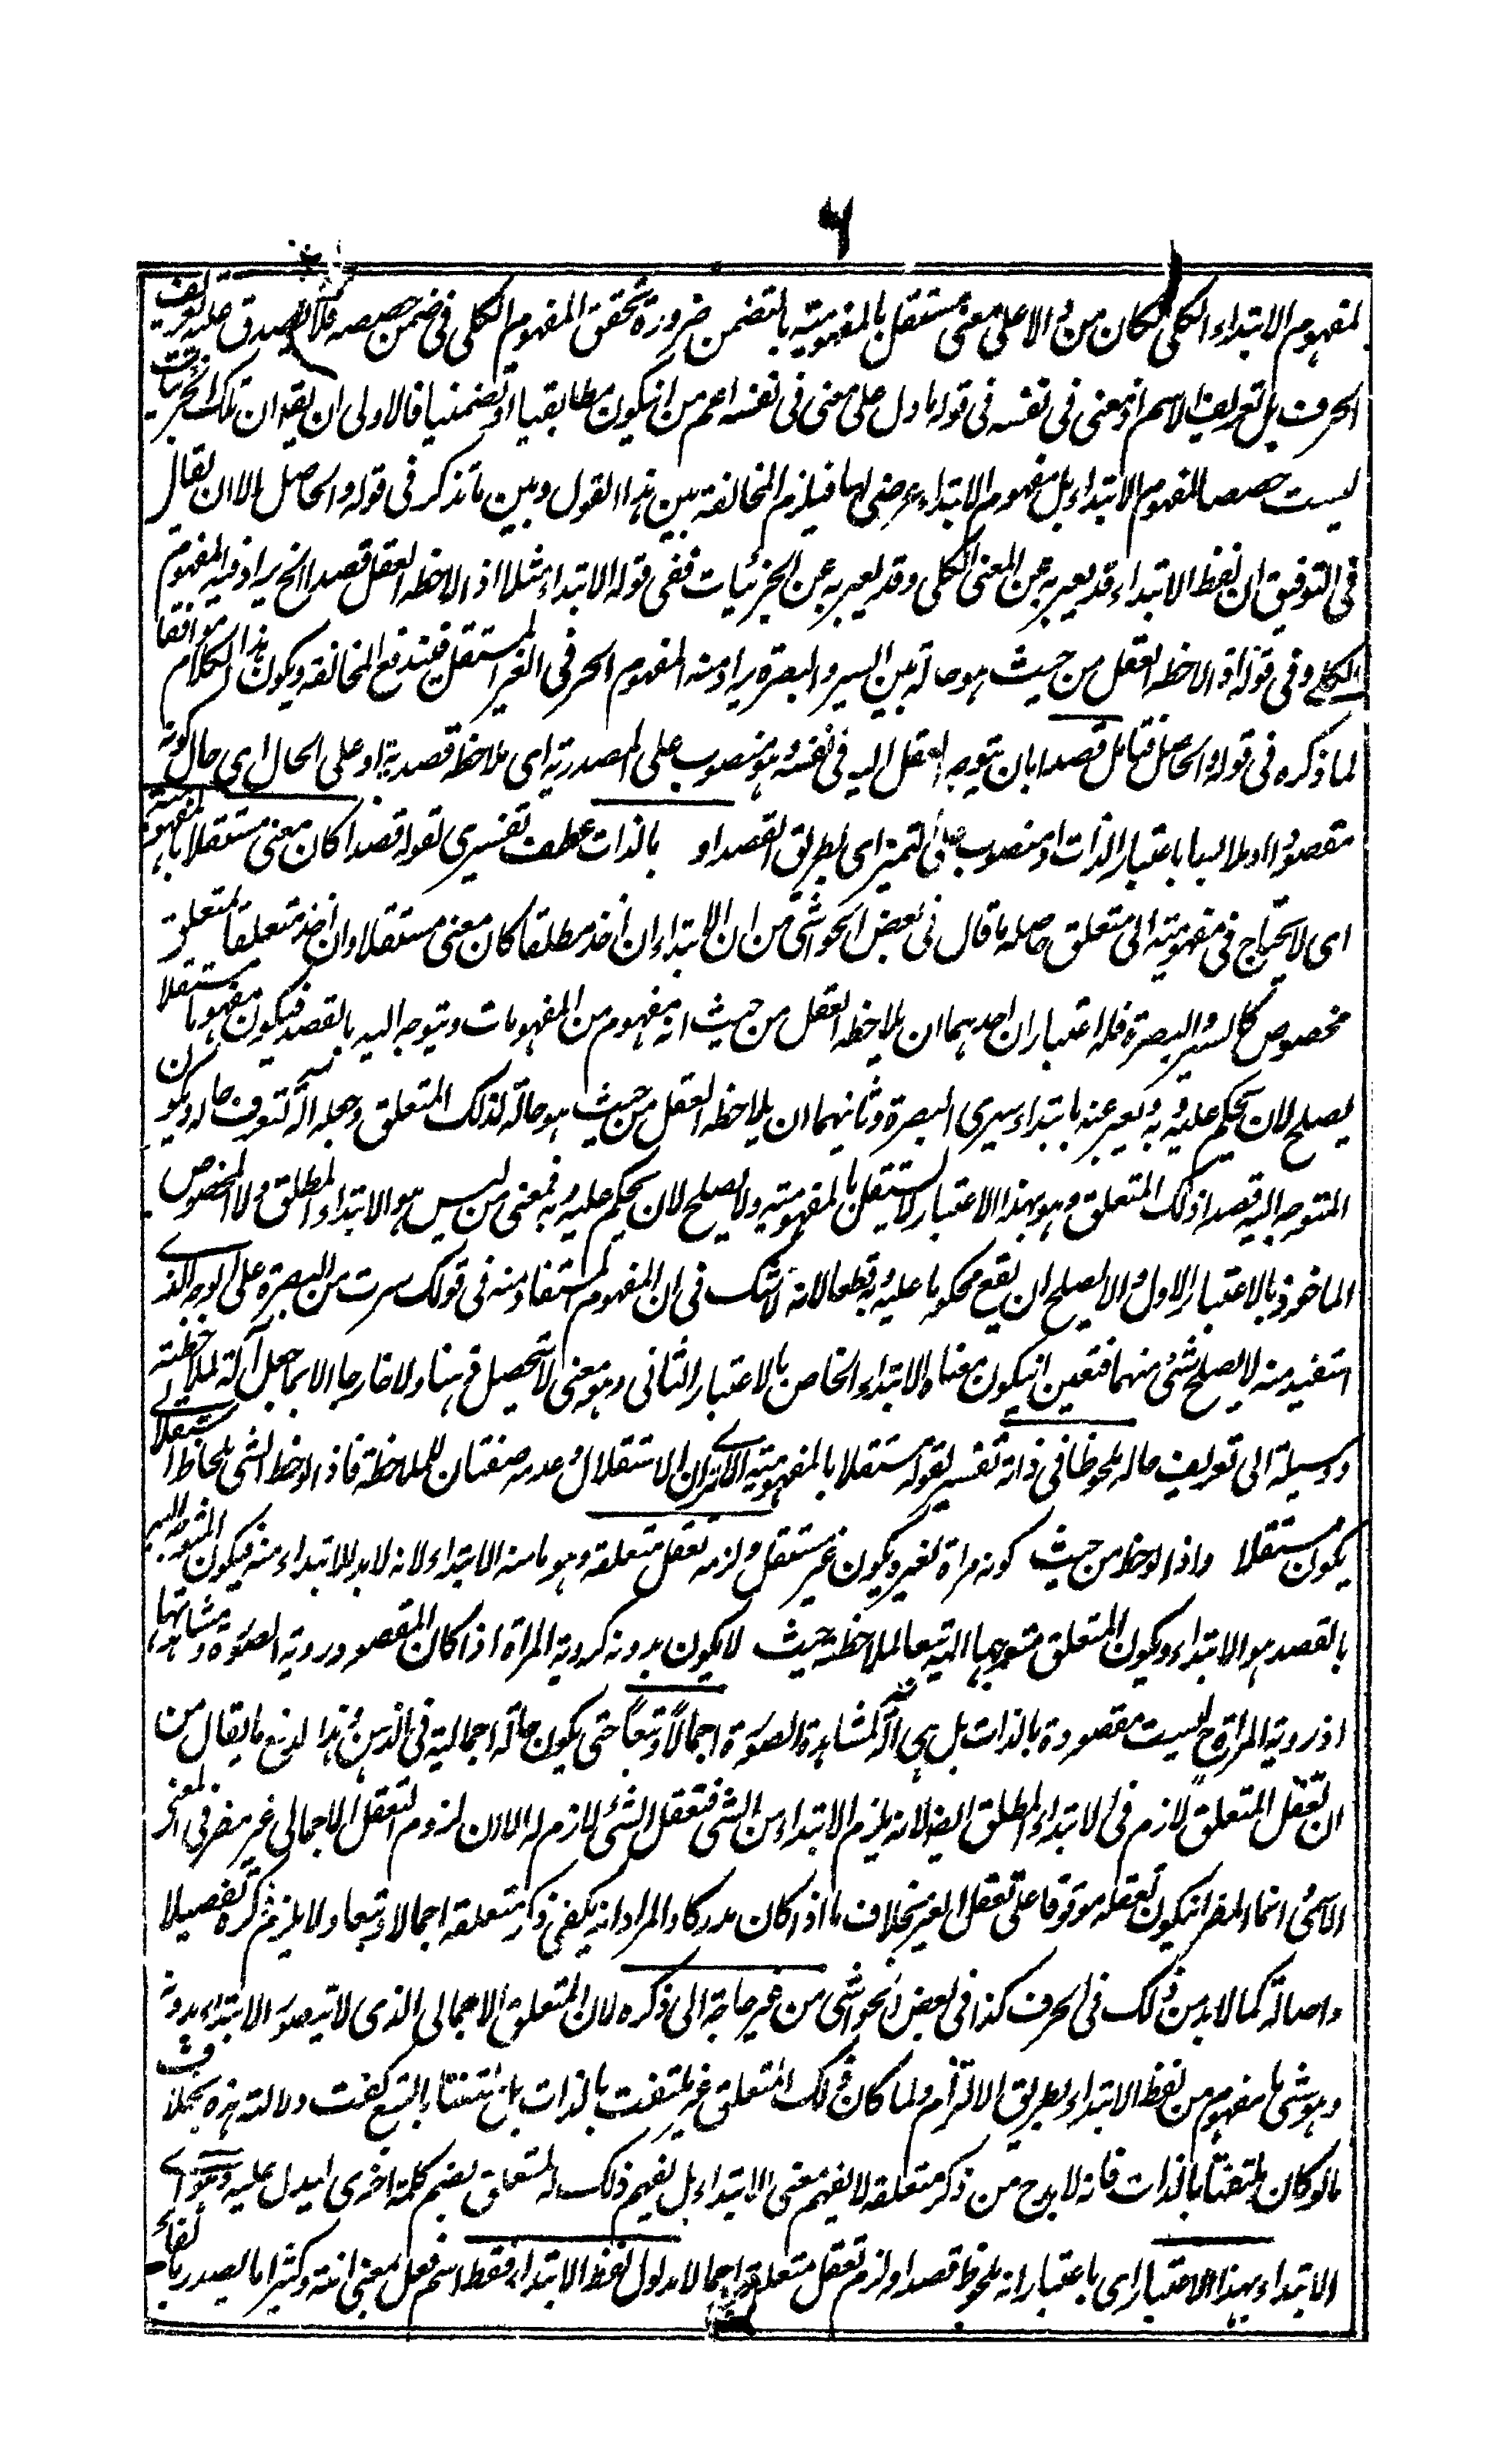 ٦
لمفهوم الابتداء الكلي لكان من والا على معنى مستقل بالمفهومية بالتضمن ضرورة تحقق المفهوم الكلي في ضمن حصصه فلا يصدق عليه تعريف
الحرف بل تعريف الاسم اذ معنى في نفسه في قوله ما دل على معنى في نفسه اعم من انيكون مطابقيا او تضمنيا فالاولى ان يقو ان تلك الجزئيات
ليست حصصا لمفهوم الابتداء بل مفهوم الابتداء عرضي لها فيلزم المخالفة بين هذا القول وبين ما تذكر في قوله والحاصل الا ان يقال
في التوفيق ان لفظ الابتداء قد يعبر به عن المعنى الكلي وقد يعبر به عن الجزئيات ففي قوله الابتداء مثلا اذا لاحظه العقل قصدا الخ يراد فيه المفهوم
الكلي وفي قوله اذا لاحظه العقل من حيث هو حالة بين السير والبصرة يراد منه المفهوم الحرفي الغير المستقل فيندفع المخالفة ويكون هذا الكلام موافقا
لما ذكره في قوله والحاصل فتامل قصدا بان يتوجه العقل اليه في نفسه وهو منصوب على المصدرية اى ملاحظة قصدية او على الحال اى حال كونه
مقصودا او ملابسا باعتبار الذات او منصوب على التميز اى بطريق القصد او بالذات عطف تفسيري لقوله قصدا كان معنى مستقلا بالمفهومية
اى لا يحتاج في مفهوميته الى متعلق حاصله ما قال في بعض الحواشي من ان الابتداء ان اخذ مطلقا كان معنى مستقلا وان اخذ متعلقا بمتعلق
مخصوص كالسير والبصرة فله اعتباران احدهما ان يلاحظه العقل من حيث انه مفهوم من المفهومات ويتوجه اليه بالقصد فيكون مفهوما مستقلا
يصلح لان يحكم عليه وبه ويعبر عنه بابتداء سيرى البصرة وثانيهما ان يلاحظه العقل من حيث هو حالة لذلك المتعلق وجعله آلة لتعرف حاله ويكون
المتوجه اليه قصدا ذلك المتعلق وهو بهذا الاعتبار لا يستقل بالمفهومية ولا يصلح لان يحكم عليه وبه فمعنى من ليس هو الابتداء المطلق ولا المخصوص
الماخوذ بالاعتبار الاول والا لصلح ان يقع محكوما عليه وبه قطعا لانه لا شك في ان المفهوم المستفاد منه في قولك سرت من البصرة على الوجه الذى
استفيد منه لا يصلح لشئ منهما فتعين انيكون معناه الابتداء الخاص بالاعتبار الثاني وهو معنى لا تحصل له ذهنا ولا خارجا الا بما جعل آلة لملاحظته
ووسيلة الى تعريف حاله ملحوظا في ذاته تفسير لقوله مستقلا بالمفهومية الا ترى ان الاستقلال وعدمه صفتان للملاحظة فاذا لوحظ الشئ بلحاظ استقلالى
يكون مستقلا واذا لوحظ من حيث كونه مراة لغيره يكون غير مستقل ولزمه تعقل متعلقه وهو ما منه الابتداء لانه لا بد للابتداء منه فيكون المتوجه اليه
بالقصد هو الابتداء ويكون المتعلق متوجها اليه تبعا لملاحظته حيث لا يكون بدونه كروية المراة اذا كان المقصود روية الصورة ومشابهتها
اذ روية المراة ح ليست مقصودة بالذات بل هى آلة لمشاهدة الصورة اجمالا وتبعا حتى يكون حاله اجمالية في الذهن وهذا لدفع ما يقال من
ان تعقل المتعلق لازم في الابتداء المطلق ايضا لانه يلزم الابتداء من الشئ فتعقل الشئ لازم له الا ان لزوم التعقل الاجمالي غير مضر في المعنى
الاسمى انما المضر انيكون تعقله موقوفا على تعقل الغير بخلاف ما اذا كان مدركا والمراد انه يكفى ذكر متعلقه اجمالا وتبعا ولا يلزم ذكره تفصيلا
واصالة كما لا بد من ذلك في الحرف كذا في بعض الحواشى من غير حاجة الى ذكره لان المتعلق الاجمالى الذى لا يتصور الابتداء بدونه
وهو شئ ما مفهوم من لفظ الابتداء بطريق الالتزام ولما كان ذلك المتعلق غير ملتفت بالذات بل ملتفتا بالتبع كفت دلالته هذه بخلاف
ما لو كان ملتفتا بالذات فانه لا بد ح من ذكر متعلقه لا يفهم معنى الابتداء بل يفهم ذلك المتعلق بضم كلمة اخرى ليدل عليه وهو اى
الابتداء بهذا الاعتبار اى باعتبار انه ملحوظ قصدا ولزم تعقل متعلقه اجمالا مدلول لفظ الابتداء فقط اسم فعل بمعنى انته وكثيرا ما يصدر بالفاء